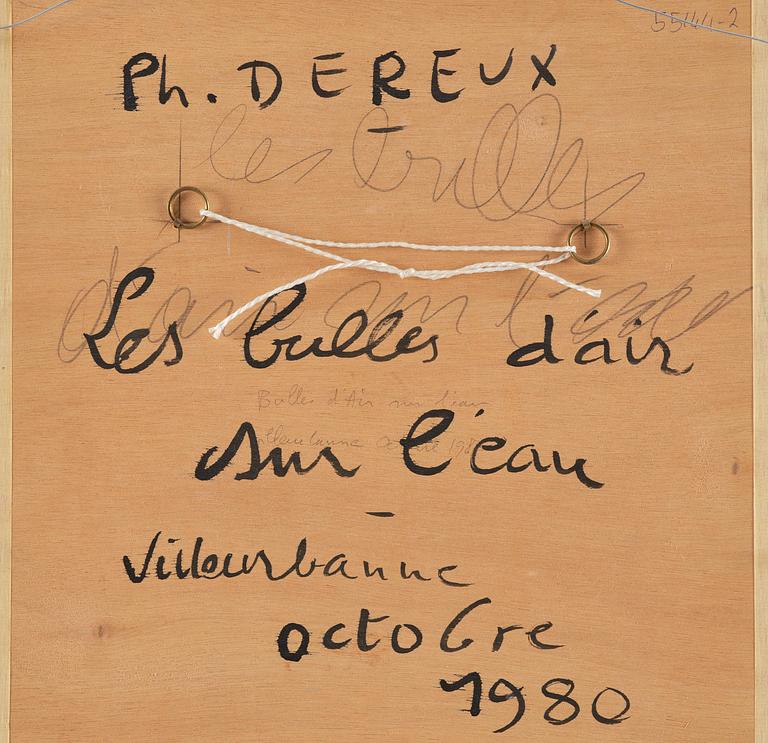 Ph. DEREUX
les bulles
d'air sur l'eau
Les bulles d'air
Bulles d'Air sur l'eau
Villeurbanne 
sur l'éau
Villeurbanne
octobre
1980